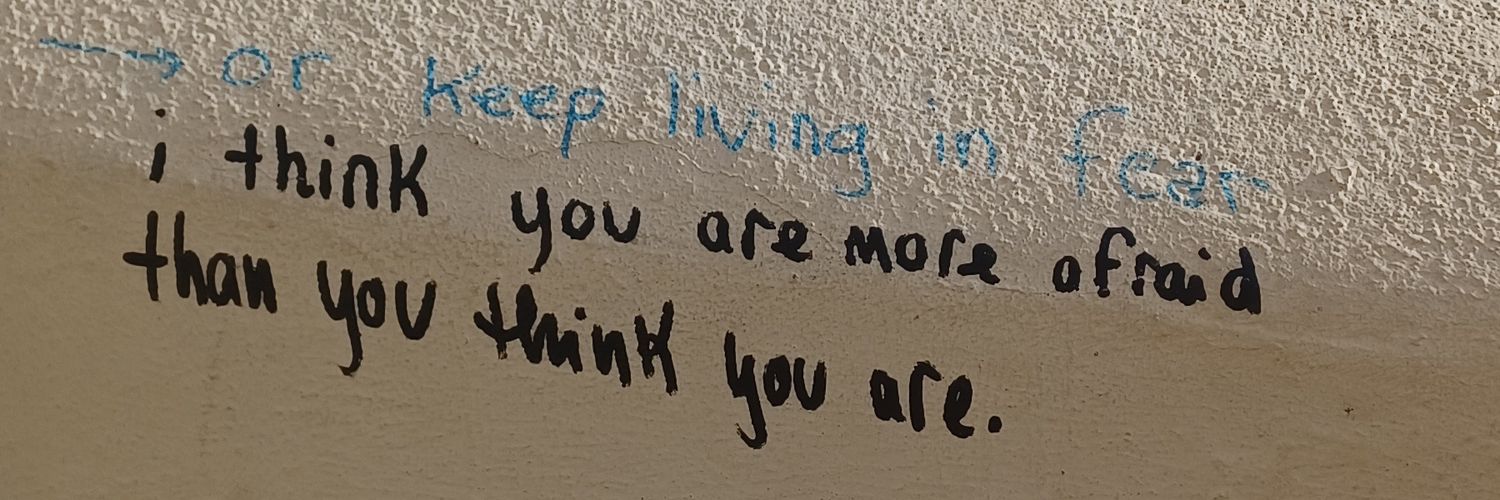 → or keep living in fear
i think you are more afraid
than you think you are.